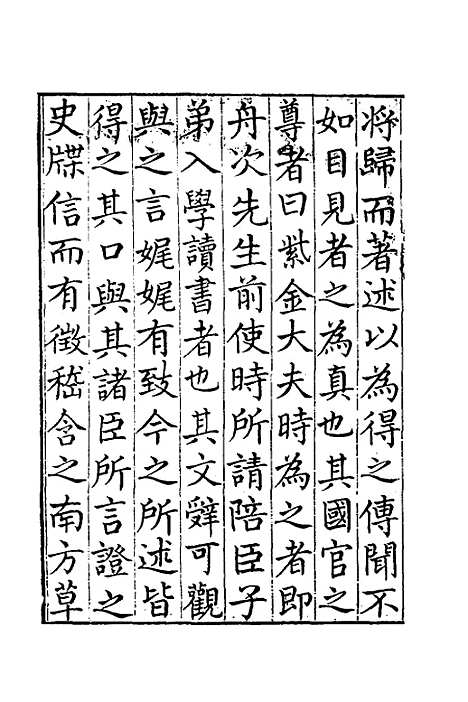 将歸而著述以為得之傳聞不
如目見者之為真也其國官之
尊者曰紫金大夫時為之者即
舟次先生前使時所請陪臣子
弟入學讀書者也其文辭可觀
與之言娓娓有致今之所述皆
得之其口與其諸臣所言證之
史牒信而有徵嵇含之南方草